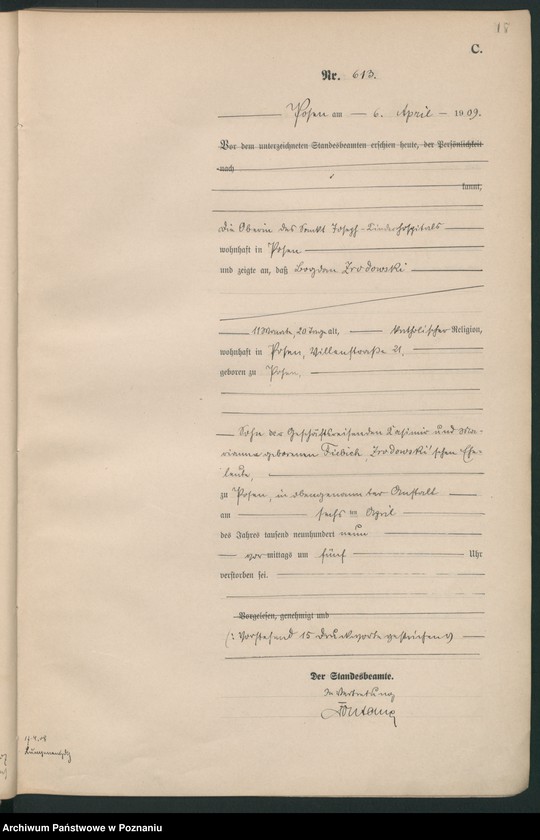 18
C.
Nr. 613.
Posen am 6. April 1909.
Vor dem unterzeichneten Standesbeamten erschien heute, der Persönlichkeit
nach
kannt,
Die Oberin des Sankt Joseph-Kinderhospitals
wohnhaft in Posen
und zeigte an, daß Bogdan Zrodowski
11 Monate, 20 Tage alt, katholischer Religion,
wohnhaft in Posen, Villenstraße 21,
geboren zu Posen,
Sohn der Geschäftsreisenden Kasimir und Ma-
rianna geborenen Fiebich, Zrodowski'schen Ehe-
leute,
zu Posen, in obengenannter Anstalt
am sechs ten April
des Jahres tausend neunhundert neun
vor mittags um fünf Uhr
verstorben sei.
Vorgelesen, genehmigt und
(: Vorstehend 15 Druckworte gestrichen
Der Standesbeamte.
In Vertretung
Archiwum Państwowe w Poznaniu